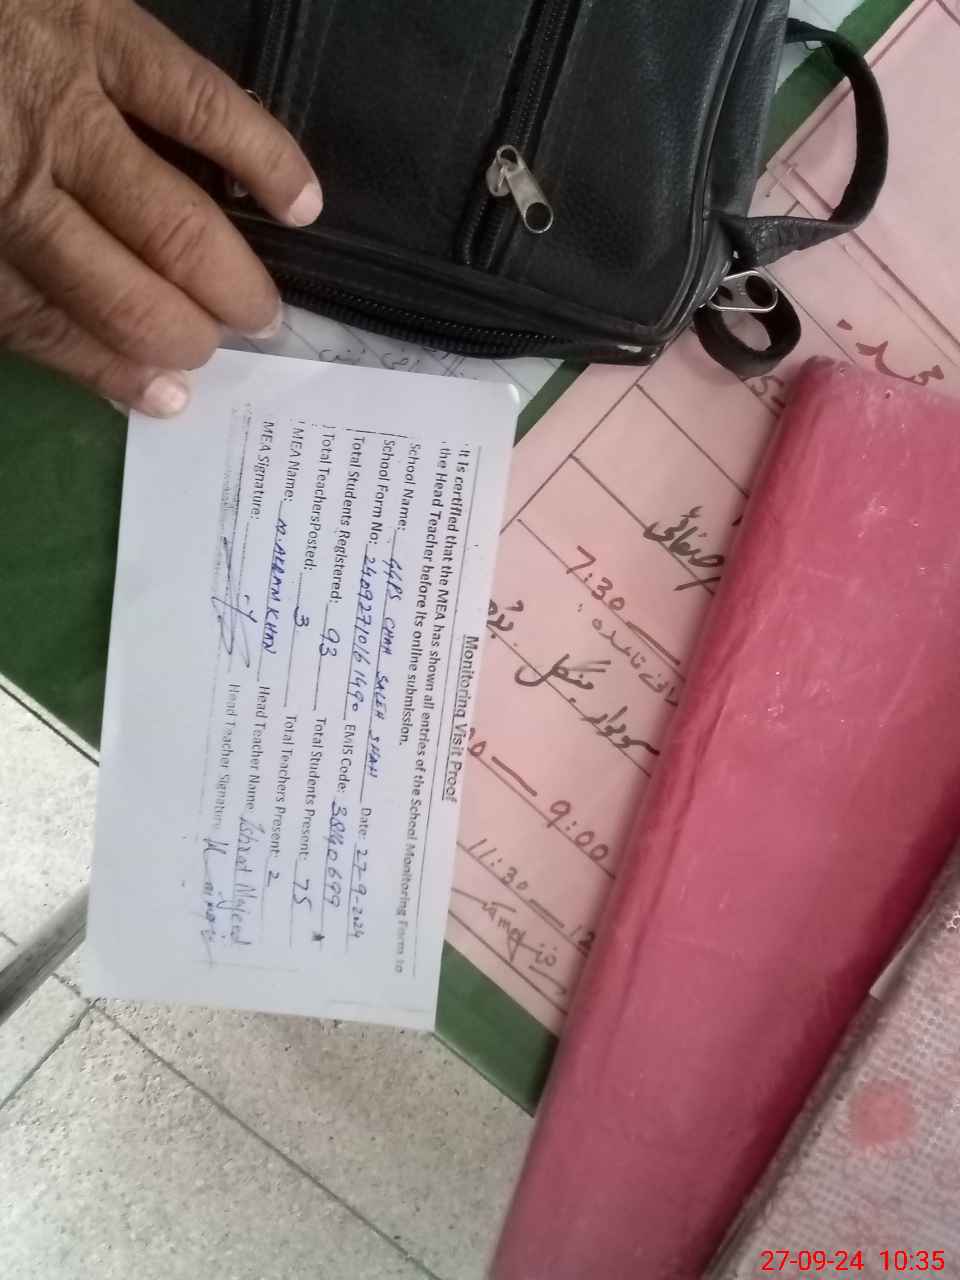 Monitoring Visit Proof
It is certified that the MEA has shown all entries of the School Monitoring Form to
the Head Teacher before its online submission.
School Name: GGPS CHAH SALEH SHAH Date: 27-9-2024
School Form No: 24092710161490 EMIS Code: 38140699
Total Students Registered: 93 Total Students Present: 75
Total TeachersPosted: 3 Total Teachers Present: 2
MEA Name: M. AKRAM KHAN Head Teacher Name Ishrat Majeed
MEA Signature: Head Teacher Signature
محمد
صفائی
7:30
سوموار منگل بدھ
9:00
11:30 — 12
27-09-24 10:35